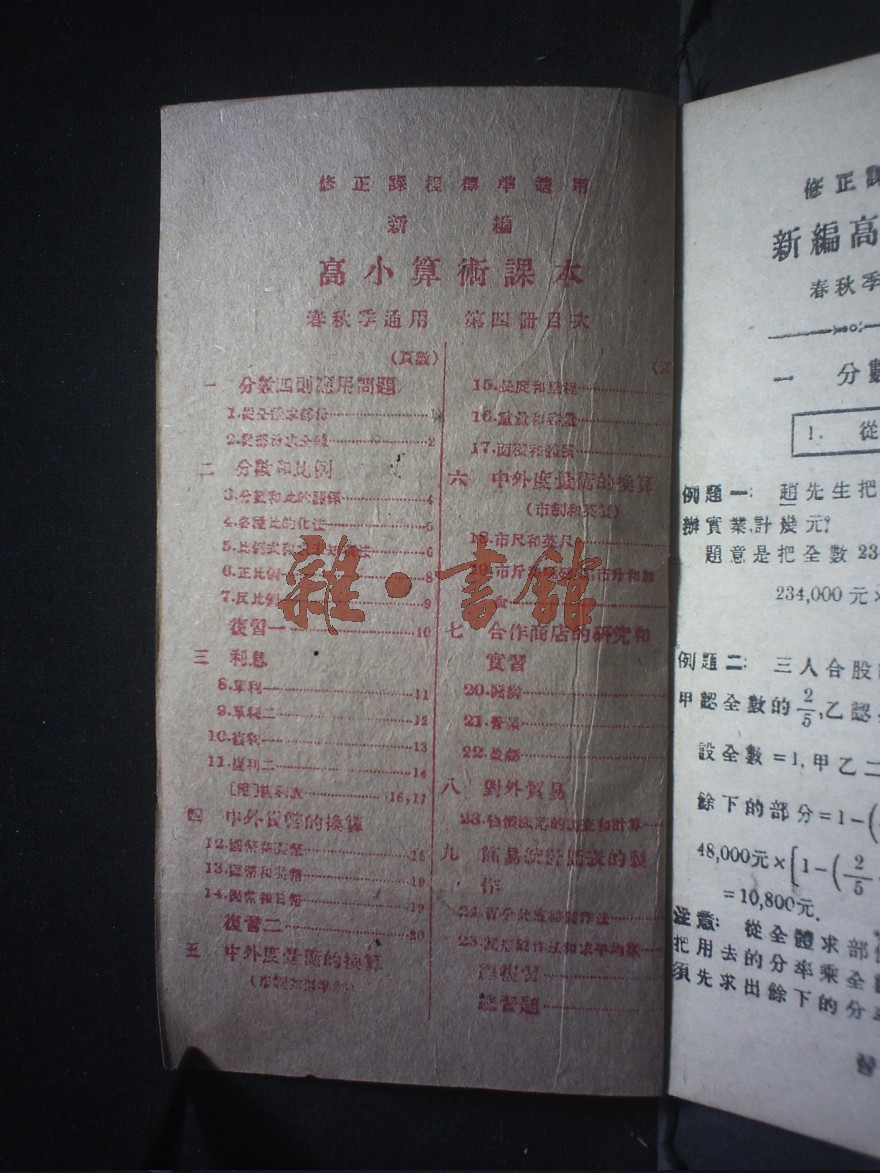 修正課程標準適用
新編
高小算術課本
春秋季通用 第四冊目次
(頁數)
一 分數四則應用問題
1.從全體求部份 1
2.從部份求全體 2
二 分數和比例
3.分數和比的關係 4
4.各種比的化法 5
6.正比例 8
7.反比例 9
復習一 10
三 利息
8.單利一 11
9.單利二 12
10.複利一 13
11.複利二 14
[附]複利表 16,17
四 中外貨幣的換算
12.國幣和美幣 18
13.國幣和英幣 19
14.國幣和日幣 19
復習二 20
五 中外度量衡的換算
15.長度和里程
16.重量和容量
17.面積和體積
六 中外度量衡的換算
(市制和英制)
18.市尺和英尺
七 合作商店的研究和
實習
20.
21.營業
22.盈虧
八 對外貿易
23.物價漲落的調查和計算
九 簡易統計圖表的製
作
24.百分比
總復習
總習題
雜·書館
修正課
新編高
春秋季
一 分數
1. 從
例題一: 趙先生把
辦實業,計幾元?
題意是把全數 23
234,000 元×
例題二: 三人合股
甲認全數的 2/5,乙認
設全數=1,甲乙二
餘下的部分=1-(
48,000元×[1-(2/5
=10,800元.
注意: 從全體求部
把用去的分率乘全
須先求出餘下的分率
習